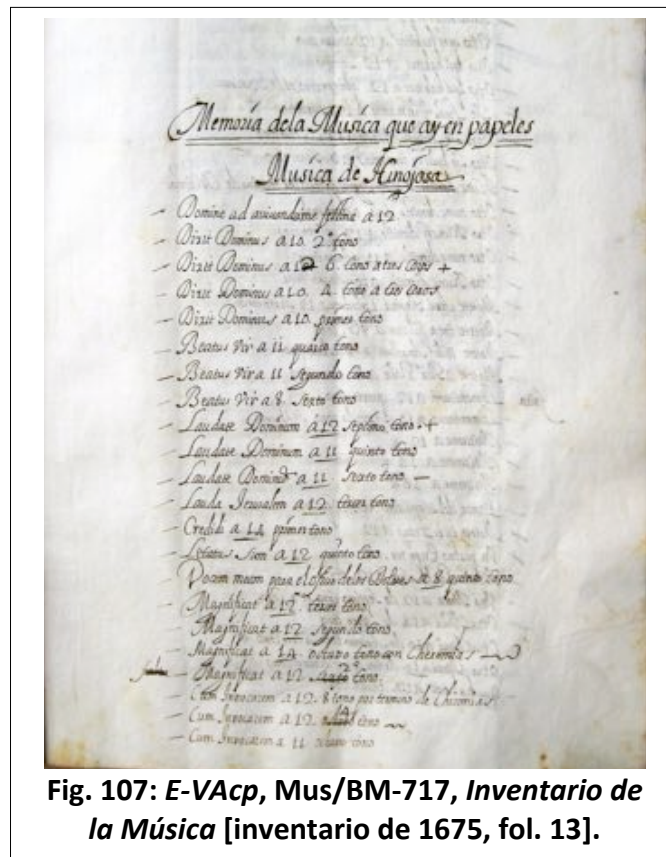 Memoria dela Musica que ay en papeles
Musica de Hinojosa
– Domine ad aiuvandume festine a 12
– Dixit Dominus a 10. 2º tono
– Dixit Dominus a 12 6. tono a tres coros +
– Dixit Dominus a 10. 4. tono a tres coros.
– Dixit Dominus a 10. primer tono
– Beatus Vir a 11 quarto tono
– Beatus Vir a 11 segundo tono
– Beatus Vir a 8. sexto tono
– Laudate Dominum a 12 septimo tono +
– Laudate Dominum a 11 quinto tono
– Laudate Dominū a 11 sexto tono –
– Lauda Jerusalem a 12. tercer tono
– Credidi a 14 primer tono
– Letatus Sum a 12 quinto tono
– Vocem meam para el officio de los a 8 quinto tono
– Magnificat a 12 tercer tono
Magnificat a 12 segundo tono
– Magnificat a 14 octavo tono con Cheremias
– Magnificat a 12 2º tono.
– Cum Invocarem a 12. 8 tono por termino de Chirimias
– Cum Invocarem a 12. tono
– Cum Invocarem a 11 octavo tono
Fig. 107: E-VAcp, Mus/BM-717, Inventario de
la Música [inventario de 1675, fol. 13].